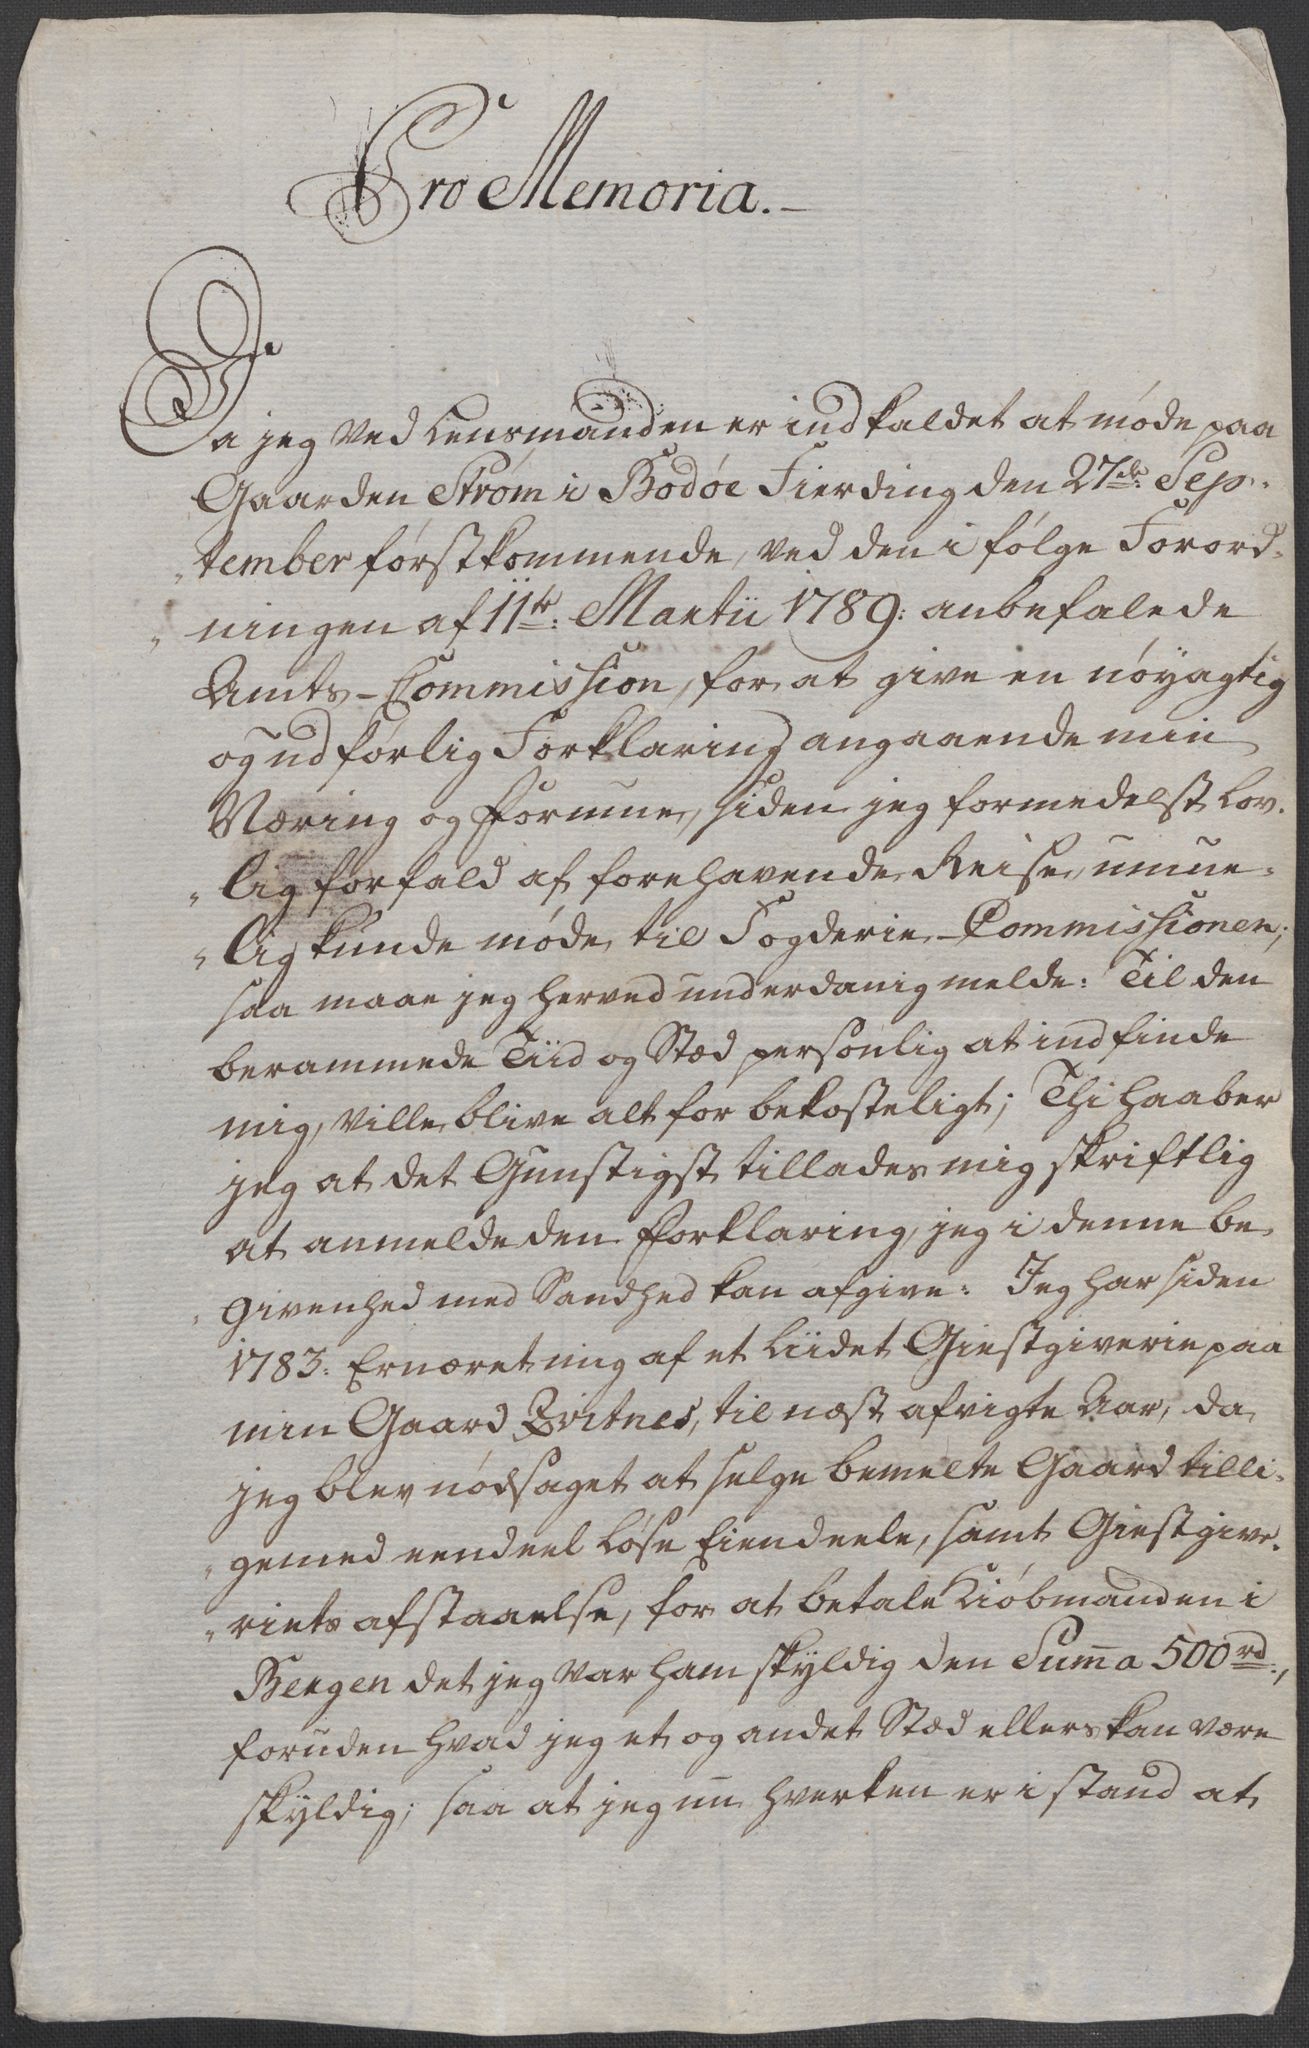 Pro Memoria.-
Da jeg ved Lensmanden er indkaldet at møde paa
Gaarden Strøm i Bodøe Fierding den 27de: Sep-
„tember førstkommende, ved den i følge Forord-
„ningen af 11te: Martii 1789: anbefalede
Amts-Commission, for at give en nøyagtig
og udførlig Forklaring angaaende min
Næring og Formue, siden jeg formedelst Lov-
„lig forfald af forehavende Reise, umue-
„lig kunde møde til Fogderie-Commissionen;
saa maae jeg herved underdanig melde: Til den
berammede Tiid og Stæd personlig at indfinde
mig, ville blive alt for bekosteligt; Thi haaber
jeg at det Gunstigst tillades mig skriftlig
at anmelde den Forklaring, jeg i denne be-
„givenhed med Sandhed kan afgive: Jeg har siden
1783: Ernæret mig af et Liidet Giestgiverie paa
min Gaard Zvitnes, til næst afvigte Aar, da
jeg blev nødsaget at selge bemelte Gaard tilli-
„gemed eendeel Løse Eiendeele, samt Giestgive-
„riets afstaaelse, for at betale Kiøbmanden i
Bergen det jeg var ham skyldig den Sum̄a 500rd:,
foruden hvad jeg et og andet Stæd ellers kan være
skyldig; saa at jeg nu hverken er i stand at